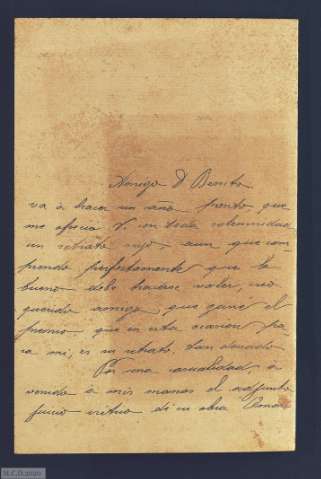 Amigo D Benito
va á hacer un año pronto que
me ofreció V. con toda solemnidad
un retrato suyo; aun que com-
prendo perfectamente que lo
bueno debe hacerse valer, creo
querido amigo, que gané el
premio que en esta ocasion pa-
ra mi, es su retrato, tan deseado
Por una casualidad á
venido á mis manos el adjunto
juicio critico de su obra